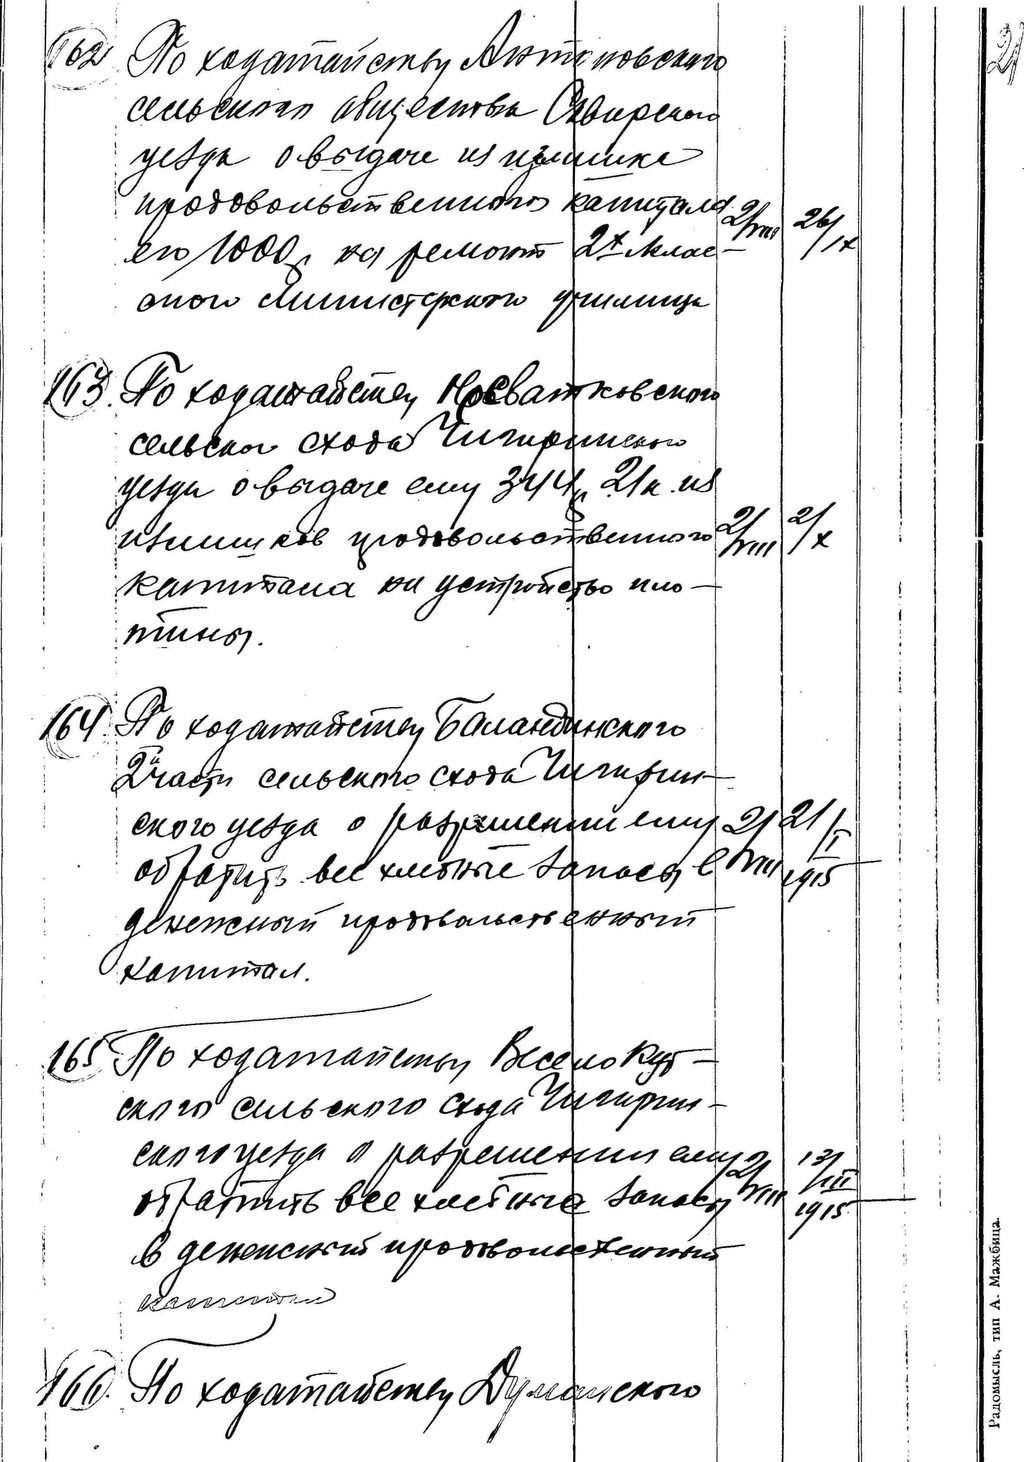 21
162 По ходатайству Антоновского
сельского общества Сквирского
уезда о выдаче из излишка
продовольственного капитала 2/VIII 26/IX
его 1000 р. на ремонт 2х клас-
сного Министерского училища
163. По ходатайству
сельского схода Чигиринского
уезда о выдаче ему 344 р. 21 к. из
излишков продовольственного 2/VIII 2/X
капитала на устройство пло-
тины.
164 По ходатайству Баландинского
2й части сельского схода Чигирин-
ского уезда о разрешении ему
обратить все хлебные запасы в 2/VIII 21/I 1915
денежный продовольственный
капитал.
165 По ходатайству Веселокут-
ского сельского схода Чигирин-
ского уезда о разрешении ему
обратить все хлебные запасы 2/VIII 13/III 1915
в денежный продовольственный
капитал
166. По ходатайству Думанского
Радомысль, тип А. Мажбица.